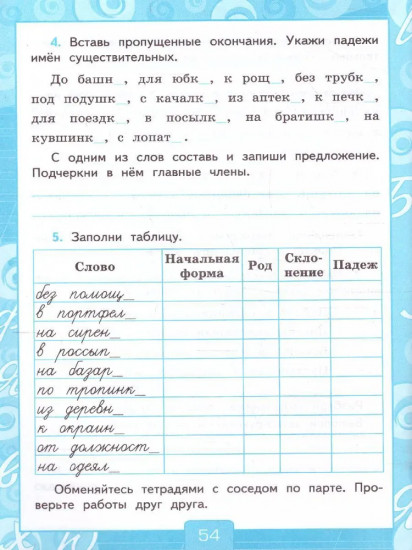 4. Вставь пропущенные окончания. Укажи падежи
имён существительных.
До башн_, для юбк_, к рощ_, без трубк_,
под подушк_, с качалк_, из аптек_, к печк_,
для поездк_, в посылк_, на братишк_, на
кувшинк_, с лопат_.
С одним из слов составь и запиши предложение.
Подчеркни в нём главные члены.
5. Заполни таблицу.
Слово Начальная форма Род Скло-нение Падеж
без помощ_
в портфел_
на сирен_
в россып_
на базар_
по тропинк_
из деревн_
к окраин_
от должност_
на одеял_
Обменяйтесь тетрадями с соседом по парте. Про-
верьте работы друг друга.
54